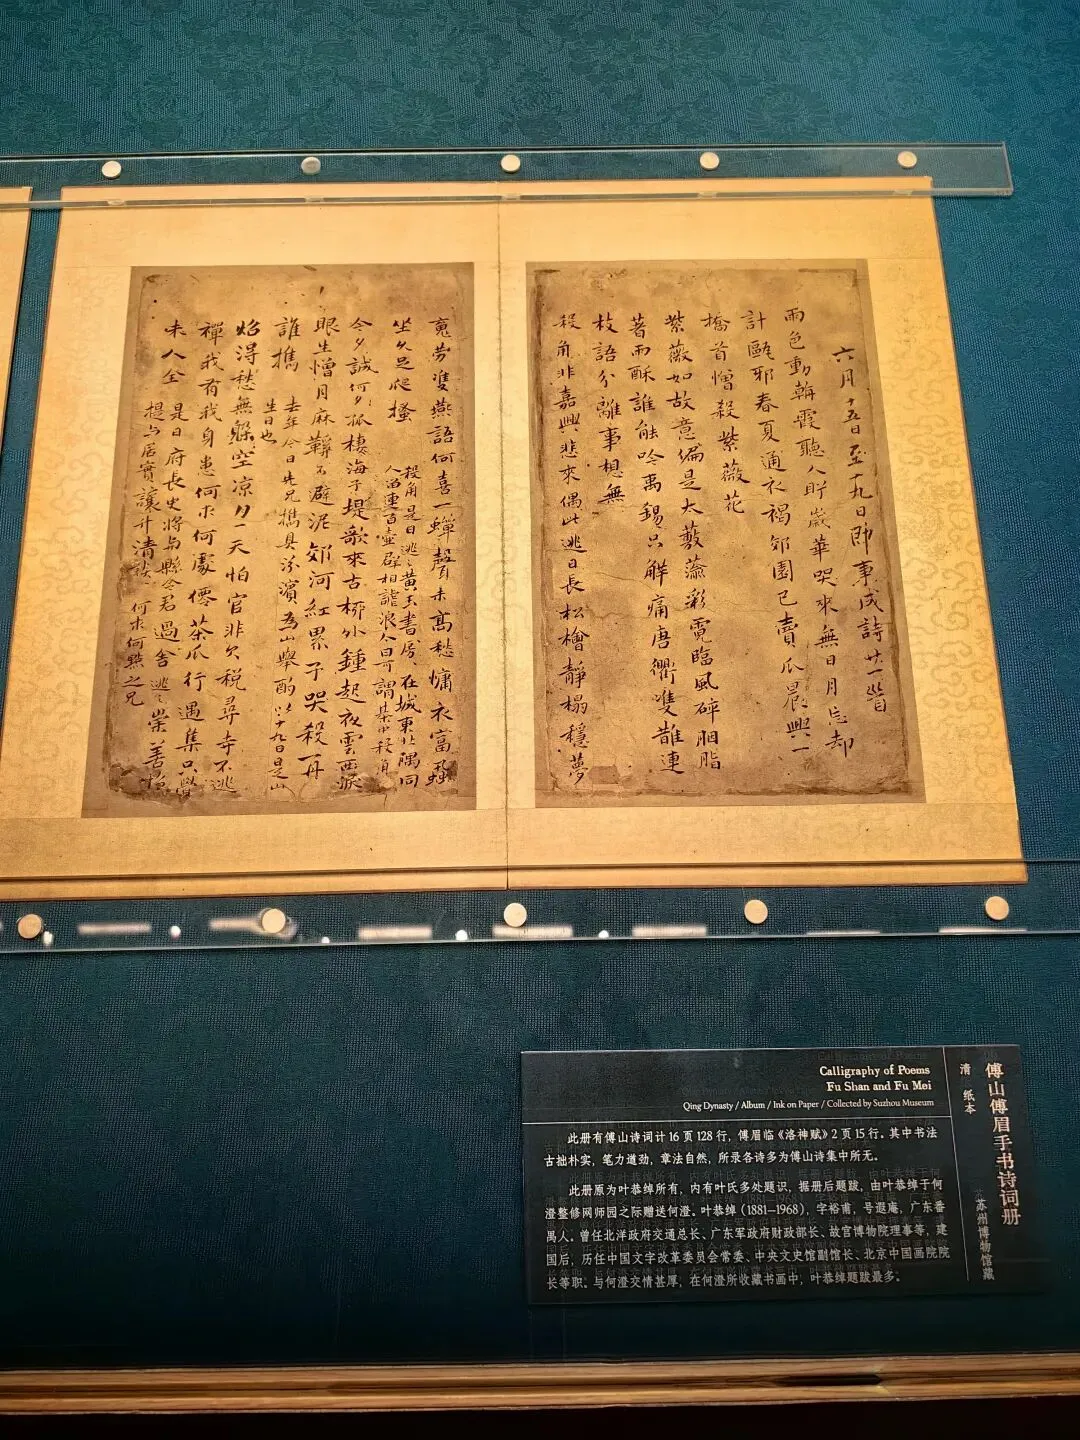 六月十五日至十九日即事成詩廿一首
雨色動輈霞聽人貯歲華哭來無日月忘却
計甌邪春夏通衣褐郊園已賣瓜晨興一
搔首憎殺紫薇花
紫薇如故意偏是太藂蕍彩霓臨風碎胭脂
著雨酥誰能吟禹錫只解痛唐衢雙誰連
枝語分離事想無
殺角非嘉興悲來偶此逃日長松檜靜榻穩夢
魂勞雙燕語何喜一蟬聲未高愁慵衣富虱
坐久足爬搔
殺角是日逃黃玉書房在城東北隅同
人留連百壷群相謔浪今日可謂棊中殺角
今夕誠何夕孤棲海子堤歌來古柳外鍾起衣雲西淚
眼生憎月麻鞵不避泥郊河紅累子哭殺一丹
誰携
去年今日先兄携具汾濱為山舉酌以十九日是山
生日也
焰得愁無躲空凉刀一天怕官非欠税尋寺不逃
禪我有我身患何求何處僊茶瓜行遇集只覺
未人全
是日府長史將与縣令君過舍逃之崇善
提与居實讓升清談
何求何點之兄
傅山傅眉手书诗词册
清 纸本
苏州博物馆藏
Calligraphy of Poems
Fu Shan and Fu Mei
Qing Dynasty / Album / Ink on Paper / Collected by Suzhou Museum
此册有傅山诗词计16页128行，傅眉临《洛神赋》2页15行。其中书法
古拙朴实，笔力遒劲，章法自然，所录各诗多为傅山诗集中所无。
此册原为叶恭绰所有，内有叶氏多处题识，据册后题跋，由叶恭绰于何
澄整修网师园之际赠送何澄。叶恭绰（1881—1968），字裕甫，号遐庵，广东番
禺人。曾任北洋政府交通总长、广东军政府财政部长、故宫博物院理事等，建
国后，历任中国文字改革委员会常委、中央文史馆副馆长、北京中国画院院
长等职。与何澄交情甚厚，在何澄所收藏书画中，叶恭绰题跋最多。